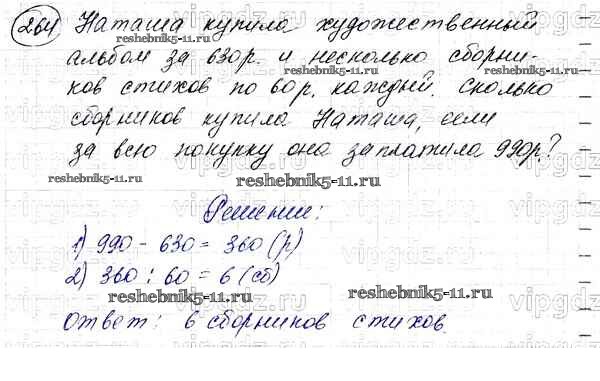 264 Наташа купила художественный
альбом за 630р. и несколько сборни-
ков стихов по 60р. каждый. Сколько
сборников купила Наташа, если
за всю покупку она заплатила 990р?
Решение:
1) 990 - 630 = 360 (р)
2) 360 : 60 = 6 (сб)
Ответ: 6 сборников стихов.
reshebnik5-11.ru
reshebnik5-11.ru
reshebnik5-11.ru
reshebnik5-11.ru
reshebnik5-11.ru
reshebnik5-11.ru
vipgdz.ru
vipgdz.ru